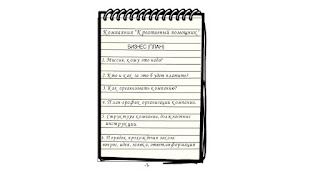 Компания "Креативный помощник"
БИЗНЕС (ПЛАН)
1. Миссия, кому это надо?
2. Кто и как за это будет платить?
3. Как организовать компанию?
4. План график организации компании.
5. Структура компании, должностные
инструкции.
6. Порядок прохождения заказа:
вопрос, идея, заявка, ответ информация